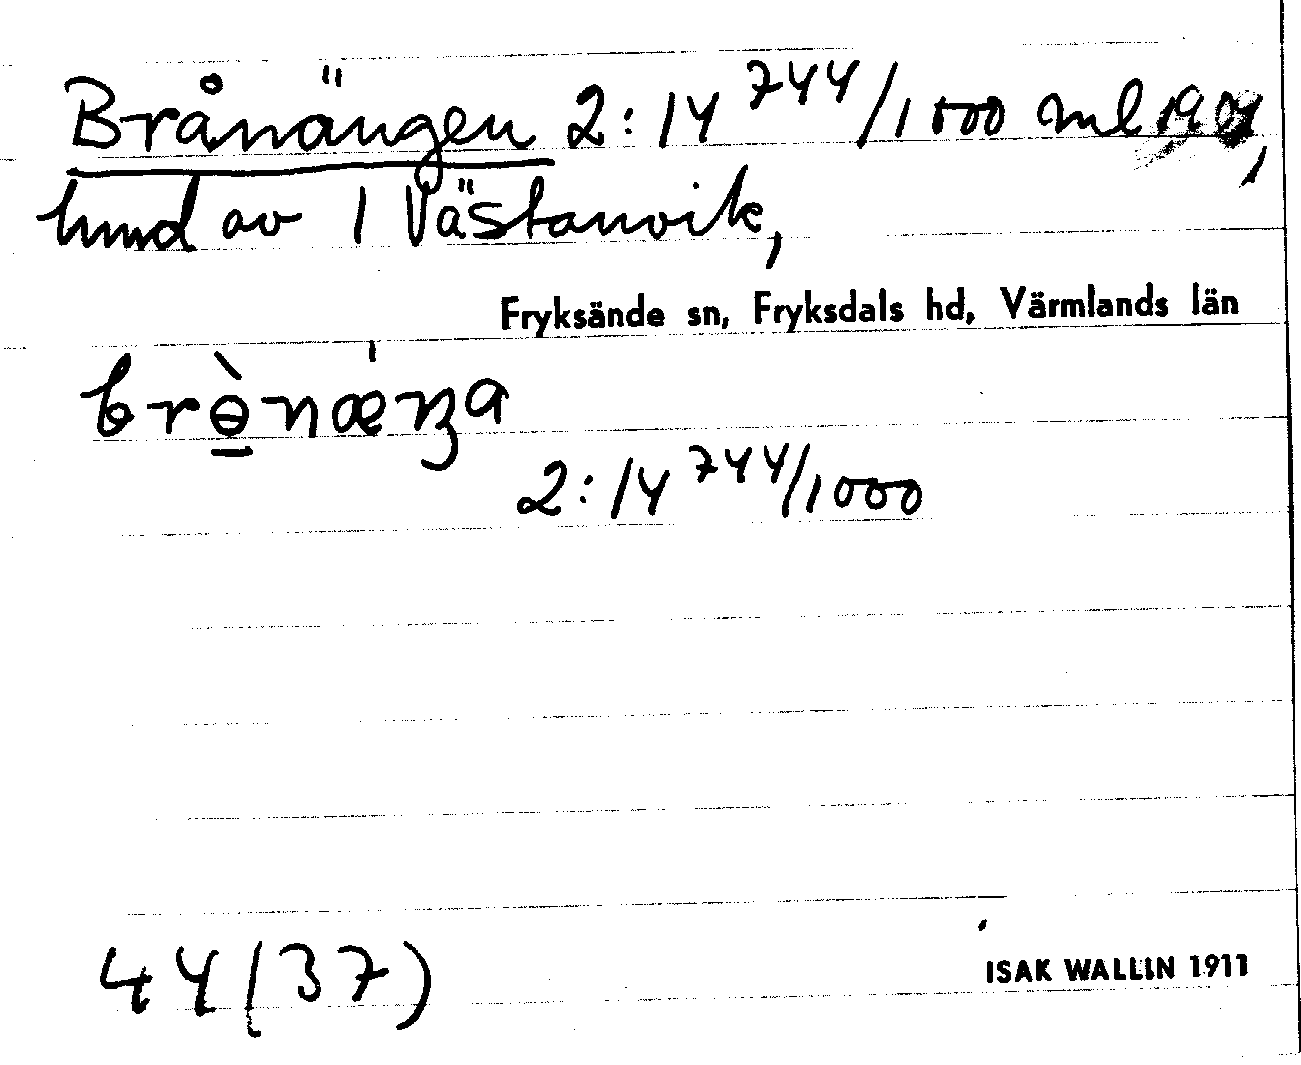 Brånängen 2:14 744/1000 ml 1901,
hmd av 1 Västanvik,
Fryksände sn, Fryksdals hd, Värmlands län
brɵ̀næŋa
2:14 744/1000
44(37)
ISAK WALLIN 1911